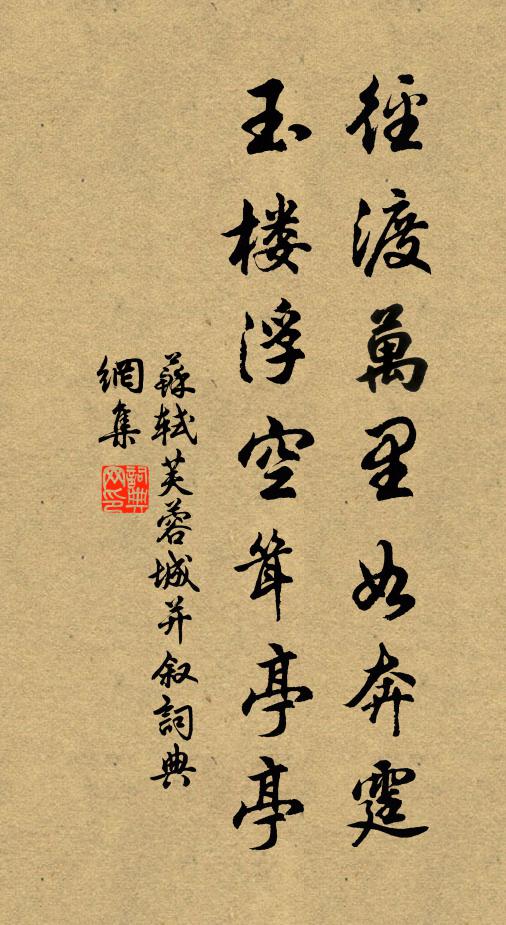 徑渡萬里如奔霆
玉楼浮空耸亭亭
蘇軾芙蓉城并叙詞典
網集
詞典
网印